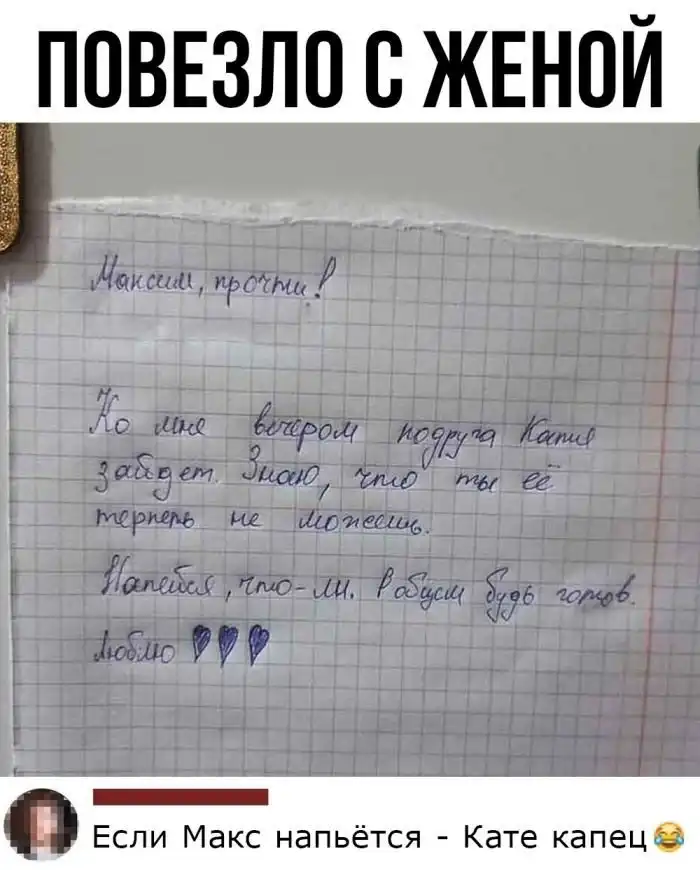 ПОВЕЗЛО С ЖЕНОЙ
Максим, прочти!
Ко мне вечером подруга Катя
зайдет. Знаю, что ты её
терпеть не можешь.
Напейся, что-ли. В общем будь готов.
Люблю
Если Макс напьётся - Кате капец